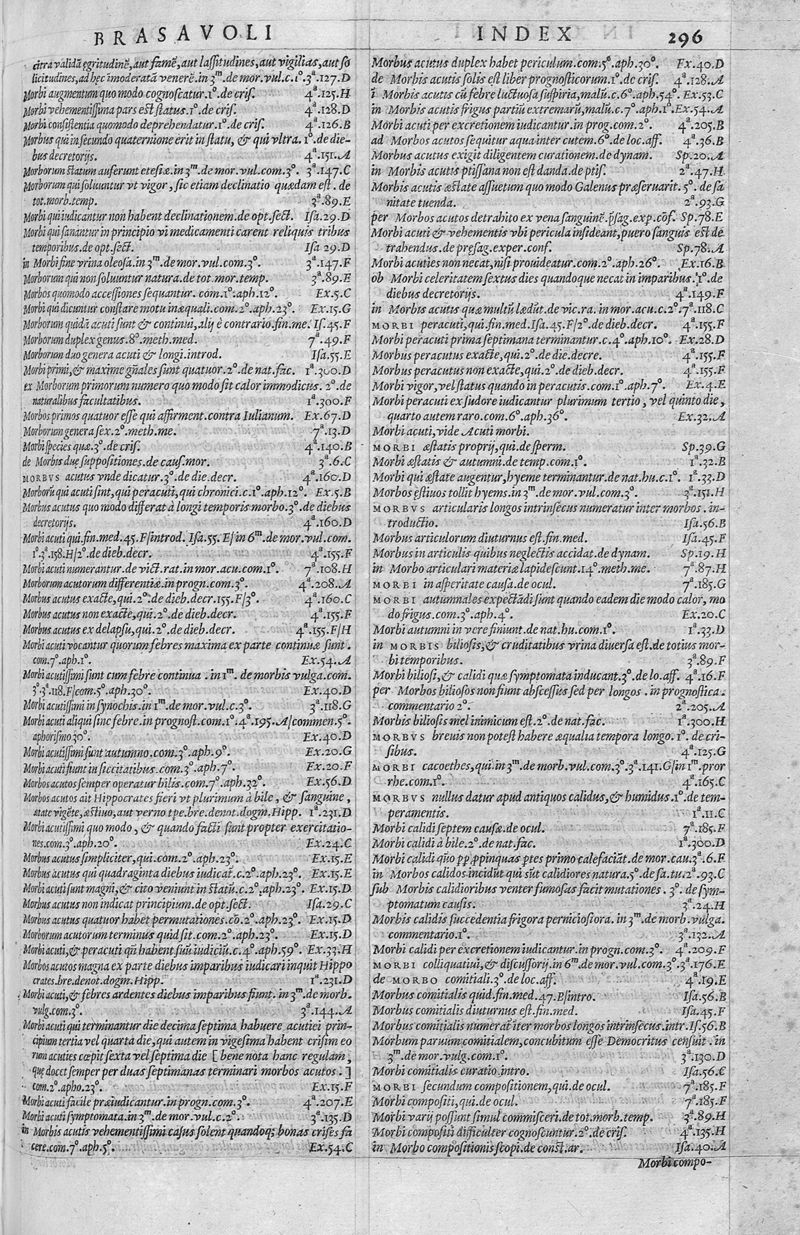 BRASAVOLI INDEX 296
citra validā egritudinē, aut famē, aut lassitudines, aut vigilias, aut so
licitudines, ad hec imoderatā venerē. in 3ᵐ. de mor. vul. c. 1⁰. 3ᵃ. 127. D
Morbi augmentum quo modo cognoscatur. 1⁰. de cris. 4ᵃ. 125. H
Morbi vehementissima pars est status. 1⁰. de cris. 4ᵃ. 128. D
Morbi consistentia quomodo deprehendatur. 1⁰. de cris. 4ᵃ. 126. B
Morbus qui in secundo quaternione erit in statu, & qui vltra. 1⁰. de die-
bus decretorijs. 4ᵃ. 151. A
Morborum statum auferunt etesiæ. in 3ᵐ. de mor. vul. com. 3⁰. 3ᵃ. 147. C
Morborum qui soluuntur vt vigor, sic etiam declinatio quædam est. de
tot. morb. temp. 3ᵃ. 89. E
Morbi qui iudicantur non habent declinationem. de opt. sect. Isa. 29. D
Morbi qui sanantur in principio vi medicamenti carent reliquis tribus
temporibus. de opt. sect. Isa 29. D
in Morbi fine vrina oleosa. in 3ᵐ. de mor. vul. com. 3⁰. 3ᵃ. 147. F
Morborum qui non soluuntur natura. de tot. mor. temp. 3ᵃ. 89. E
Morbos quomodo accessiones sequantur. com. 1⁰. aph. 12⁰. Ex. 5. C
Morbi quā dicuntur constare motu inæquali. com. 2⁰. aph. 23⁰. Ex. 15. G
Morborum quidā acuti sunt & continui, alij è contrario. fin. me. Is. 45. F
Morborum duplex genus. 8⁰. meth. med. 7ᵃ. 49. F
Morborum duo genera acuti & longi. introd. Isa. 55. E
Morbi primi, & maxime gñales sunt quatuor. 2⁰. de nat. fac. 1ᵃ. 300. D
ex Morborum primorum numero quo modo sit calor immodicus. 2⁰. de
naturalibus facultatibus. 1ᵃ. 300. F
Morbos primos quatuor esse qui affirment. contra Iulianum. Ex. 67. D
Morborum genera sex. 2⁰. meth. me. 7ᵃ. 13. D
Morbi species quæ. 3⁰. de cris. 4ᵃ. 140. B
de Morbis duę suppositiones. de caus. mor. 3ᵃ. 6. C
MORBVS acutus vnde dicatur. 3⁰. de die. decr. 4ᵃ. 160. D
Morborū qui acuti sint, qui peracuti, qui chronici. c. 1⁰. aph. 12⁰. Ex. 5. B
Morbus acutus quo modo differat à longi temporis morbo. 3⁰. de diebus
decretorijs. 4ᵃ. 160. D
Morbi acuti qui. fin. med. 45. F|introd. Isa. 55. E| in 6ᵐ. de mor. vul. com.
1⁰. 3ᵃ. 158. H| 2⁰. de dieb. decr. 4ᵃ. 155. F
Morbi acuti numerantur. de vict. rat. in mor. acu. com. 1⁰. 7ᵃ. 108. H
Morborum acutorum differentiæ. in progn. com. 3⁰. 4ᵃ. 208. A
Morbus acutus exacte, qui. 2⁰. de dieb. decr. 155. F|3⁰. 4ᵃ. 160. C
Morbus acutus non exacte, qui. 2⁰. de dieb. decr. 4ᵃ. 155. F
Morbus acutus ex delapsu, qui. 2⁰. de dieb. decr. 4ᵃ. 155. F|H
Morbi acuti vocantur quorum febres maxima ex parte continuæ sunt.
com. 7⁰. aph. 1⁰. Ex. 54. A
Morbi acutissimi sunt cum febre continua. in 1ᵐ. de morbis vulga. com.
3⁰. 3ᵃ. 118. F|com. 5⁰. aph. 30⁰. Ex. 40. D
Morbi acutissimi in synochis. in 1ᵐ. de mor. vul. c. 3⁰. 3ᵃ. 118. G
Morbi acuti aliqui sine febre. in prognost. com. 1⁰. 4ᵃ. 195. A|commen. 5⁰.
aphorismo 30⁰. Ex. 40. D
Morbi acutissimi sunt autumno. com. 3⁰. aph. 9⁰. Ex. 20. G
Morbi acuti fiunt in siccitatibus. com. 3⁰. aph. 7⁰. Ex. 20. F
Morbos acutos semper operatur bilis. com. 7⁰. aph. 32⁰. Ex. 56. D
Morbos acutos ait Hippocrates fieri vt plurimum à bile, & sanguine,
ætate vigēte, æstiuo, aut verno tpe. bre. denot. dogm. Hipp. 1ᵃ. 231. D
Morbi acutissimi quo modo, & quando facti sunt propter exercitatio-
nes. com. 3⁰. aph. 20⁰. Ex. 24. C
Morbus acutus simpliciter, qui. com. 2⁰. aph. 23⁰. Ex. 15. E
Morbus acutus qui quadraginta diebus iudicat̄. c. 2⁰. aph. 23⁰. Ex. 15. E
Morbi acuti sunt magni, & cito veniunt in statū. c. 2⁰. aph. 23⁰. Ex. 15. D
Morbus acutus non indicat principium. de opt. sect. Isa. 29. C
Morbus acutus quatuor habet permutationes. cō. 2⁰. aph. 23⁰. Ex. 15. D
Morborum acutorum terminus quid sit. com. 2⁰. aph. 23⁰. Ex. 15. D
Morbi acuti, & peracuti qñ habent suū iudiciū. c. 4⁰. aph. 59⁰. Ex. 33. H
Morbos acutos magna ex parte diebus imparibus iudicari inquit Hippo
crates. bre. denot. dogm. Hipp. 1ᵃ. 231. D
Morbi acuti, & febres ardentes diebus imparibus fiunt. in 3ᵐ. de morb.
vulg. com. 3⁰. 3ᵃ. 144. A
Morbi acuti qui terminantur die decima septima habuere acutiei prin-
cipium tertia vel quarta die, qui autem in vigesima habent crisim eo
rum acuties cœpit sexta vel septima die [ bene nota hanc regulam,
quę docet semper per duas septimanas terminari morbos acutos. ]
com. 2⁰. apho. 23⁰. Ex. 15. F
Morbi acuti facile præiudicantur. in progn. com. 3⁰. 4ᵃ. 207. E
Morbi acuti symptomata. in 3ᵐ. de mor. vul. c. 2⁰. 3ᵃ. 135. D
in Morbis acutis vehementissimi casus solent quandoq; bonas crises fa
cere. com. 7⁰. aph. 5⁰. Ex. 54. C
Morbus acutus duplex habet periculum. com. 5⁰. aph. 30⁰. Ex. 40. D
de Morbis acutis solis est liber prognosticorum. 1⁰. de cris. 4ᵃ. 128. A
ī Morbis acutis cū febre luctuosa suspiria, malū. c. 6⁰. aph. 54⁰. Ex. 53. C
in Morbis acutis frigus partiū extremarū, malū. c. 7⁰. aph. 1⁰. Ex. 54. A
Morbi acuti per excretionem iudicantur. in prog. com. 2⁰. 4ᵃ. 205. B
ad Morbos acutos sequitur aqua inter cutem. 6⁰. de loc. aff. 4ᵃ. 36. B
Morbus acutus exigit diligentem curationem. de dynam. Sp. 20. A
in Morbis acutis ptissana non est danda. de ptis. 2ᵃ. 47. H
Morbis acutis æstate assuetum quo modo Galenus præseruarit. 5⁰. de sa
nitate tuenda. 2ᵃ. 93. G
per Morbos acutos detrahito ex vena sanguinē. p̄sag. exp. cōf. Sp. 78. E
Morbi acuti & vehementis vbi pericula insideant, puero sanguis est de
trahendus. de presag. exper. conf. Sp. 78. A
Morbi acuties non necat, nisi prouideatur. com. 2⁰. aph. 26⁰. Ex. 16. B
ob Morbi celeritatem sextus dies quandoque necat in imparibus. 1⁰. de
diebus decretorijs. 4ᵃ. 149. F
in Morbis acutis quæ multū lædūt. de vic. ra. in mor. acu. c. 2⁰. 7ᵃ. 118. C
MORBI peracuti, qui. fin. med. Isa. 45. F| 2⁰. de dieb. decr. 4ᵃ. 155. F
Morbi peracuti prima septimana terminantur. c. 4⁰. aph. 10⁰. Ex. 28. D
Morbus peracutus exacte, qui. 2⁰. de die. decre. 4ᵃ. 155. F
Morbus peracutus non exacte, qui. 2⁰. de dieb. decr. 4ᵃ. 155. F
Morbi vigor, vel status quando in peracutis. com. 1⁰. aph. 7⁰. Ex. 4. E
Morbi peracuti ex sudore iudicantur plurimum tertio, vel quinto die,
quarto autem raro. com. 6⁰. aph. 36⁰. Ex. 32. A
Morbi acuti, vide Acuti morbi.
MORBI æstatis proprij, qui. de sperm. Sp. 39. G
Morbi æstatis & autumni. de temp. com. 1⁰. 1ᵃ. 22. B
Morbi qui æstate augentur, hyeme terminantur. de nat. hu. c. 1⁰. 1ᵃ. 33. D
Morbos estiuos tollit hyems. in 3ᵐ. de mor. vul. com. 3⁰. 3ᵃ. 151. H
MORBVS articularis longos intrinsecus numeratur inter morbos. in-
troductio. Isa. 56. B
Morbus articulorum diuturnus est. fin. med. Isa. 45. F
Morbus in articulis quibus neglectis accidat. de dynam. Sp. 19. H
in Morbo articulari materiæ lapidescunt. 14⁰. meth. me. 7ᵃ. 87. H
MORBI in asperitate causa. de ocul. 7ᵃ. 185. G
MORBI autumnales expectādi sunt quando eadem die modo calor, mo
do frigus. com. 3⁰. aph. 4⁰. Ex. 20. C
Morbi autumni in vere finiunt. de nat. hu. com. 1⁰. 1ᵃ. 33. D
in MORBIS biliosis, & cruditatibus vrina diuersa est. de totius mor-
bi temporibus. 3ᵃ. 89. F
Morbi biliosi, & calidi quæ symptomata inducant. 3⁰. de lo. aff. 4ᵃ. 16. F
per Morbos biliosos non fiunt abscessus sed per longos. in prognostica.
commentario 2⁰. 2ᵃ. 205. A
Morbis biliosis mel inimicum est. 2⁰. de nat. fac. 1ᵃ. 300. H
MORBVS breuis non potest habere æqualia tempora longo. 1⁰. de cri-
sibus. 4ᵃ. 125. G
MORBI cacoethes, qui. in 3ᵐ. de morb. vul. com. 3⁰. 3ᵃ. 141. G|in 1ᵐ. pror
rhe. com. 1⁰. 4ᵃ. 165. C
MORBVS nullus datur apud antiquos calidus, & humidus. 1⁰. de tem-
peramentis. 1ᵃ. 11. C
Morbi calidi septem causæ. de ocul. 7ᵃ. 185. F
Morbi calidi à bile. 2⁰. de nat. fac. 1ᵃ. 300. D
Morbi calidi qūo pp ppinquas ptes primo calefaciāt. de mor. cau. 3ᵃ. 6. F
in Morbos calidos incidūt qui sūt calidiores natura. 5⁰. de sa. tu. 2ᵃ. 93. C
sub Morbis calidioribus venter fumosas facit mutationes. 3⁰. de sym-
ptomatum causis. 3ᵃ. 24. H
Morbis calidis succedentia frigora perniciosiora. in 3ᵐ. de morb. vulga.
commentario. 1⁰. 3ᵃ. 132. A
Morbi calidi per excretionem iudicantur. in progn. com. 3⁰. 4ᵃ. 209. F
MORBI colliquatiui, & discussorij. in 6ᵐ. de mor. vul. com. 3⁰. 3ᵃ. 176. E
de MORBO comitiali. 3⁰. de loc. aff. 4ᵃ. 19. E
Morbus comitialis quid. fin. med. 47. E|intro. Isa. 56. B
Morbus comitialis diuturnus est. fin. med. Isa. 45. F
Morbus comitialis numerat̄ iter morbos longos intrinsecus. intr. Is. 56. B
Morbum paruum comitialem, concubitum esse Democritus censuit. in
3ᵐ. de mor. vulg. com. 1⁰. 3ᵃ. 130. D
Morbi comitialis curatio. intro. Isa. 56. C
MORBI secundum compositionem, qui. de ocul. 7ᵃ. 185. F
Morbi compositi, qui. de ocul. 7ᵃ. 185. F
Morbi varij possunt simul commisceri. de tot. morb. temp. 3ᵃ. 89. H
Morbi compositi difficulter cognoscuntur. 2⁰. de cris. 4ᵃ. 135. H
in Morbo compositionis scopi. de const. ar. Isa. 40. A
Morbi compo-